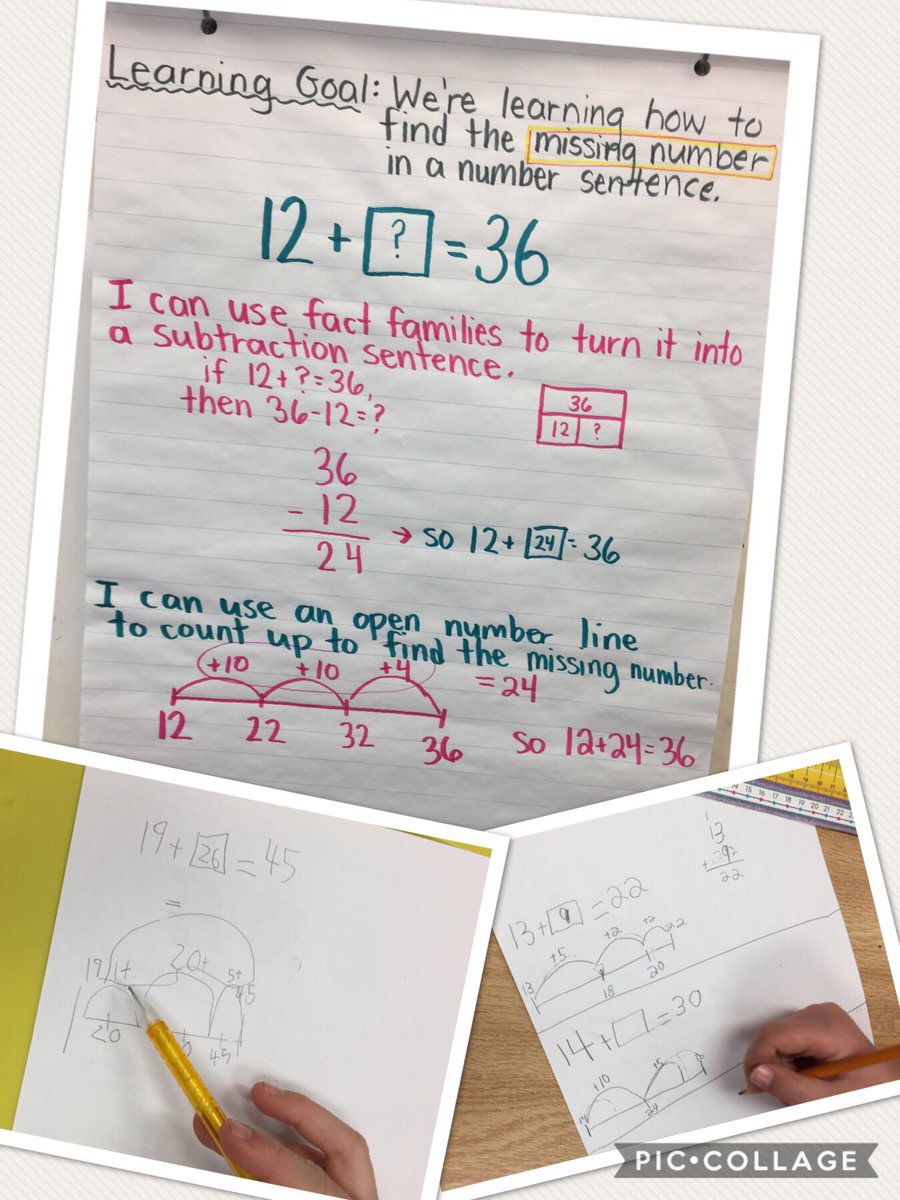 Learning Goal: We're learning how to
find the missing number
in a number sentence.
12 + ? = 36
I can use fact families to turn it into
a subtraction sentence.
if 12+?=36,
then 36-12=?
36
12 ?
36
- 12
24
→ so 12+ 24 = 36
I can use an open number line
to count up to find the missing number.
+10 +10 +4
= 24
12 22 32 36
so 12+24=36
19 + 26 = 45
=
19 1+ 20+ 5+
45
20 45
13
22
13 + 9 = 22
+5 +2 +2 22
13 18 20
14 + = 30
+10 +5
14 24
PIC•COLLAGE